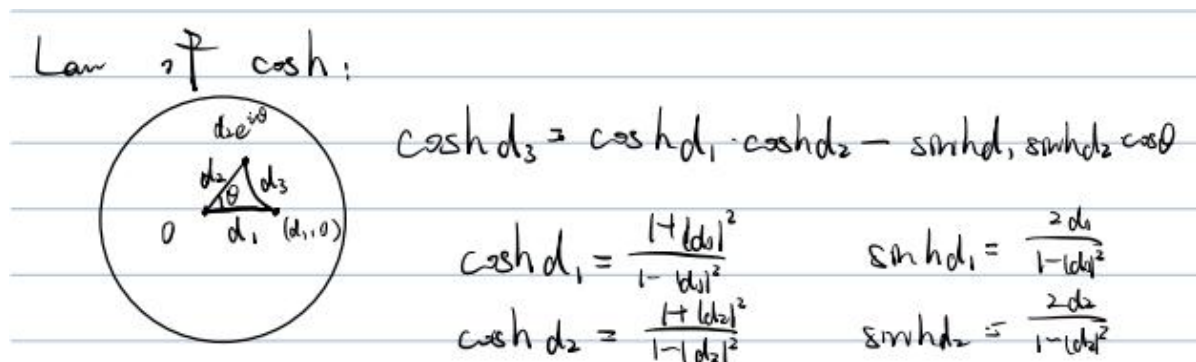 Law of cosh:
d₂e^{iθ}
cosh d₃ = cosh d₁ · cosh d₂ − sinh d₁ sinh d₂ cosθ
d₂ θ d₃
0 d₁ (d₁, 0)
cosh d₁ = \frac{1+|d₁|²}{1-|d₁|²} sinh d₁ = \frac{2d₁}{1-|d₁|²}
cosh d₂ = \frac{1+|d₂|²}{1-|d₂|²} sinh d₂ = \frac{2d₂}{1-|d₂|²}